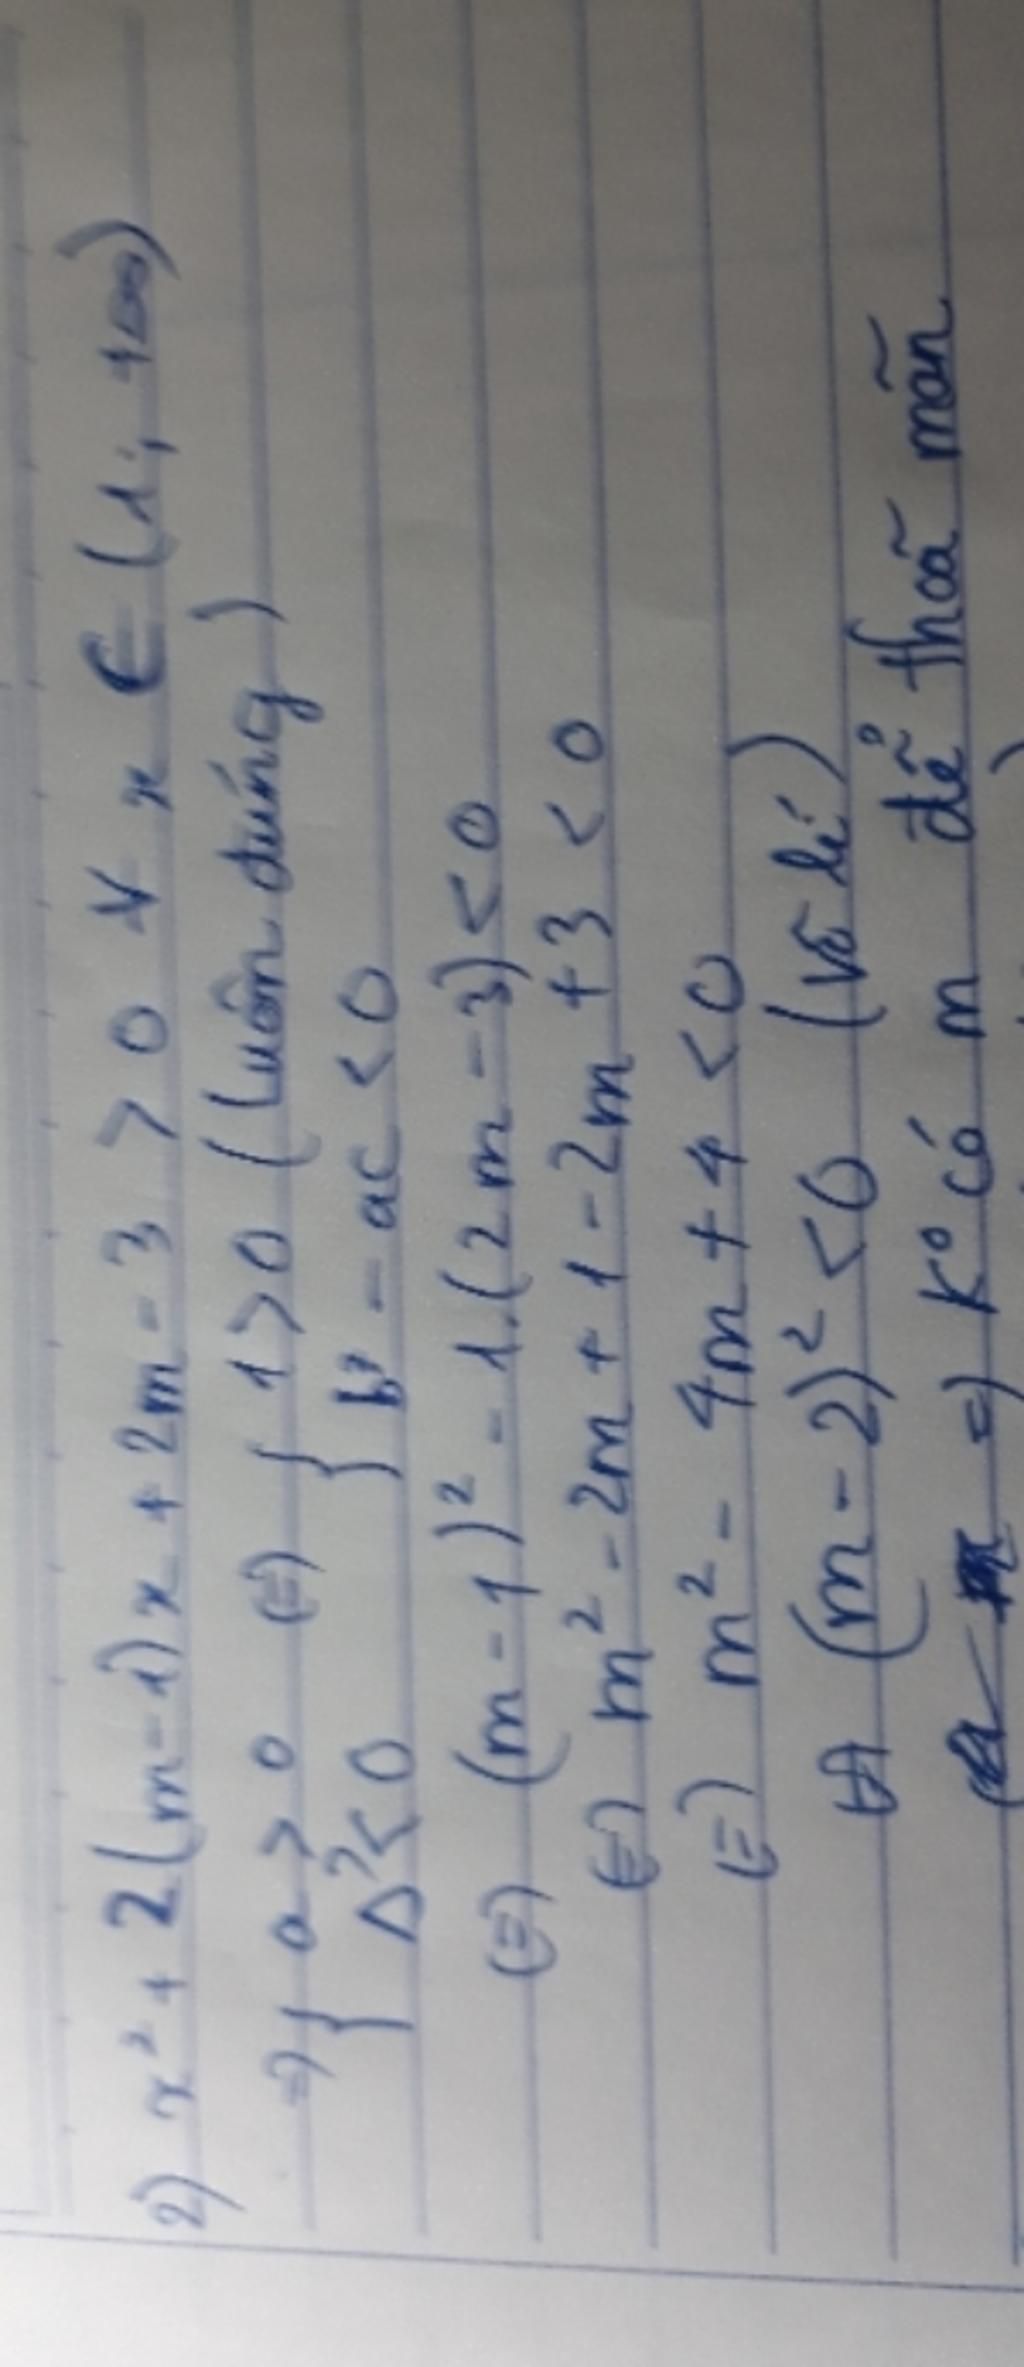 2) x² + 2(m-1)x + 2m - 3 > 0 ∀ x ∈ (1; +∞)
=> { a > 0 (=) { 1 > 0 (luôn đúng)
{ Δ' < 0 { b'² - ac < 0
(=) (m - 1)² - 1.(2m - 3) < 0
(=) m² - 2m + 1 - 2m + 3 < 0
(=) m² - 4m + 4 < 0
(=) (m - 2)² < 0 (vô lí)
=) k° có m để thoã mãn